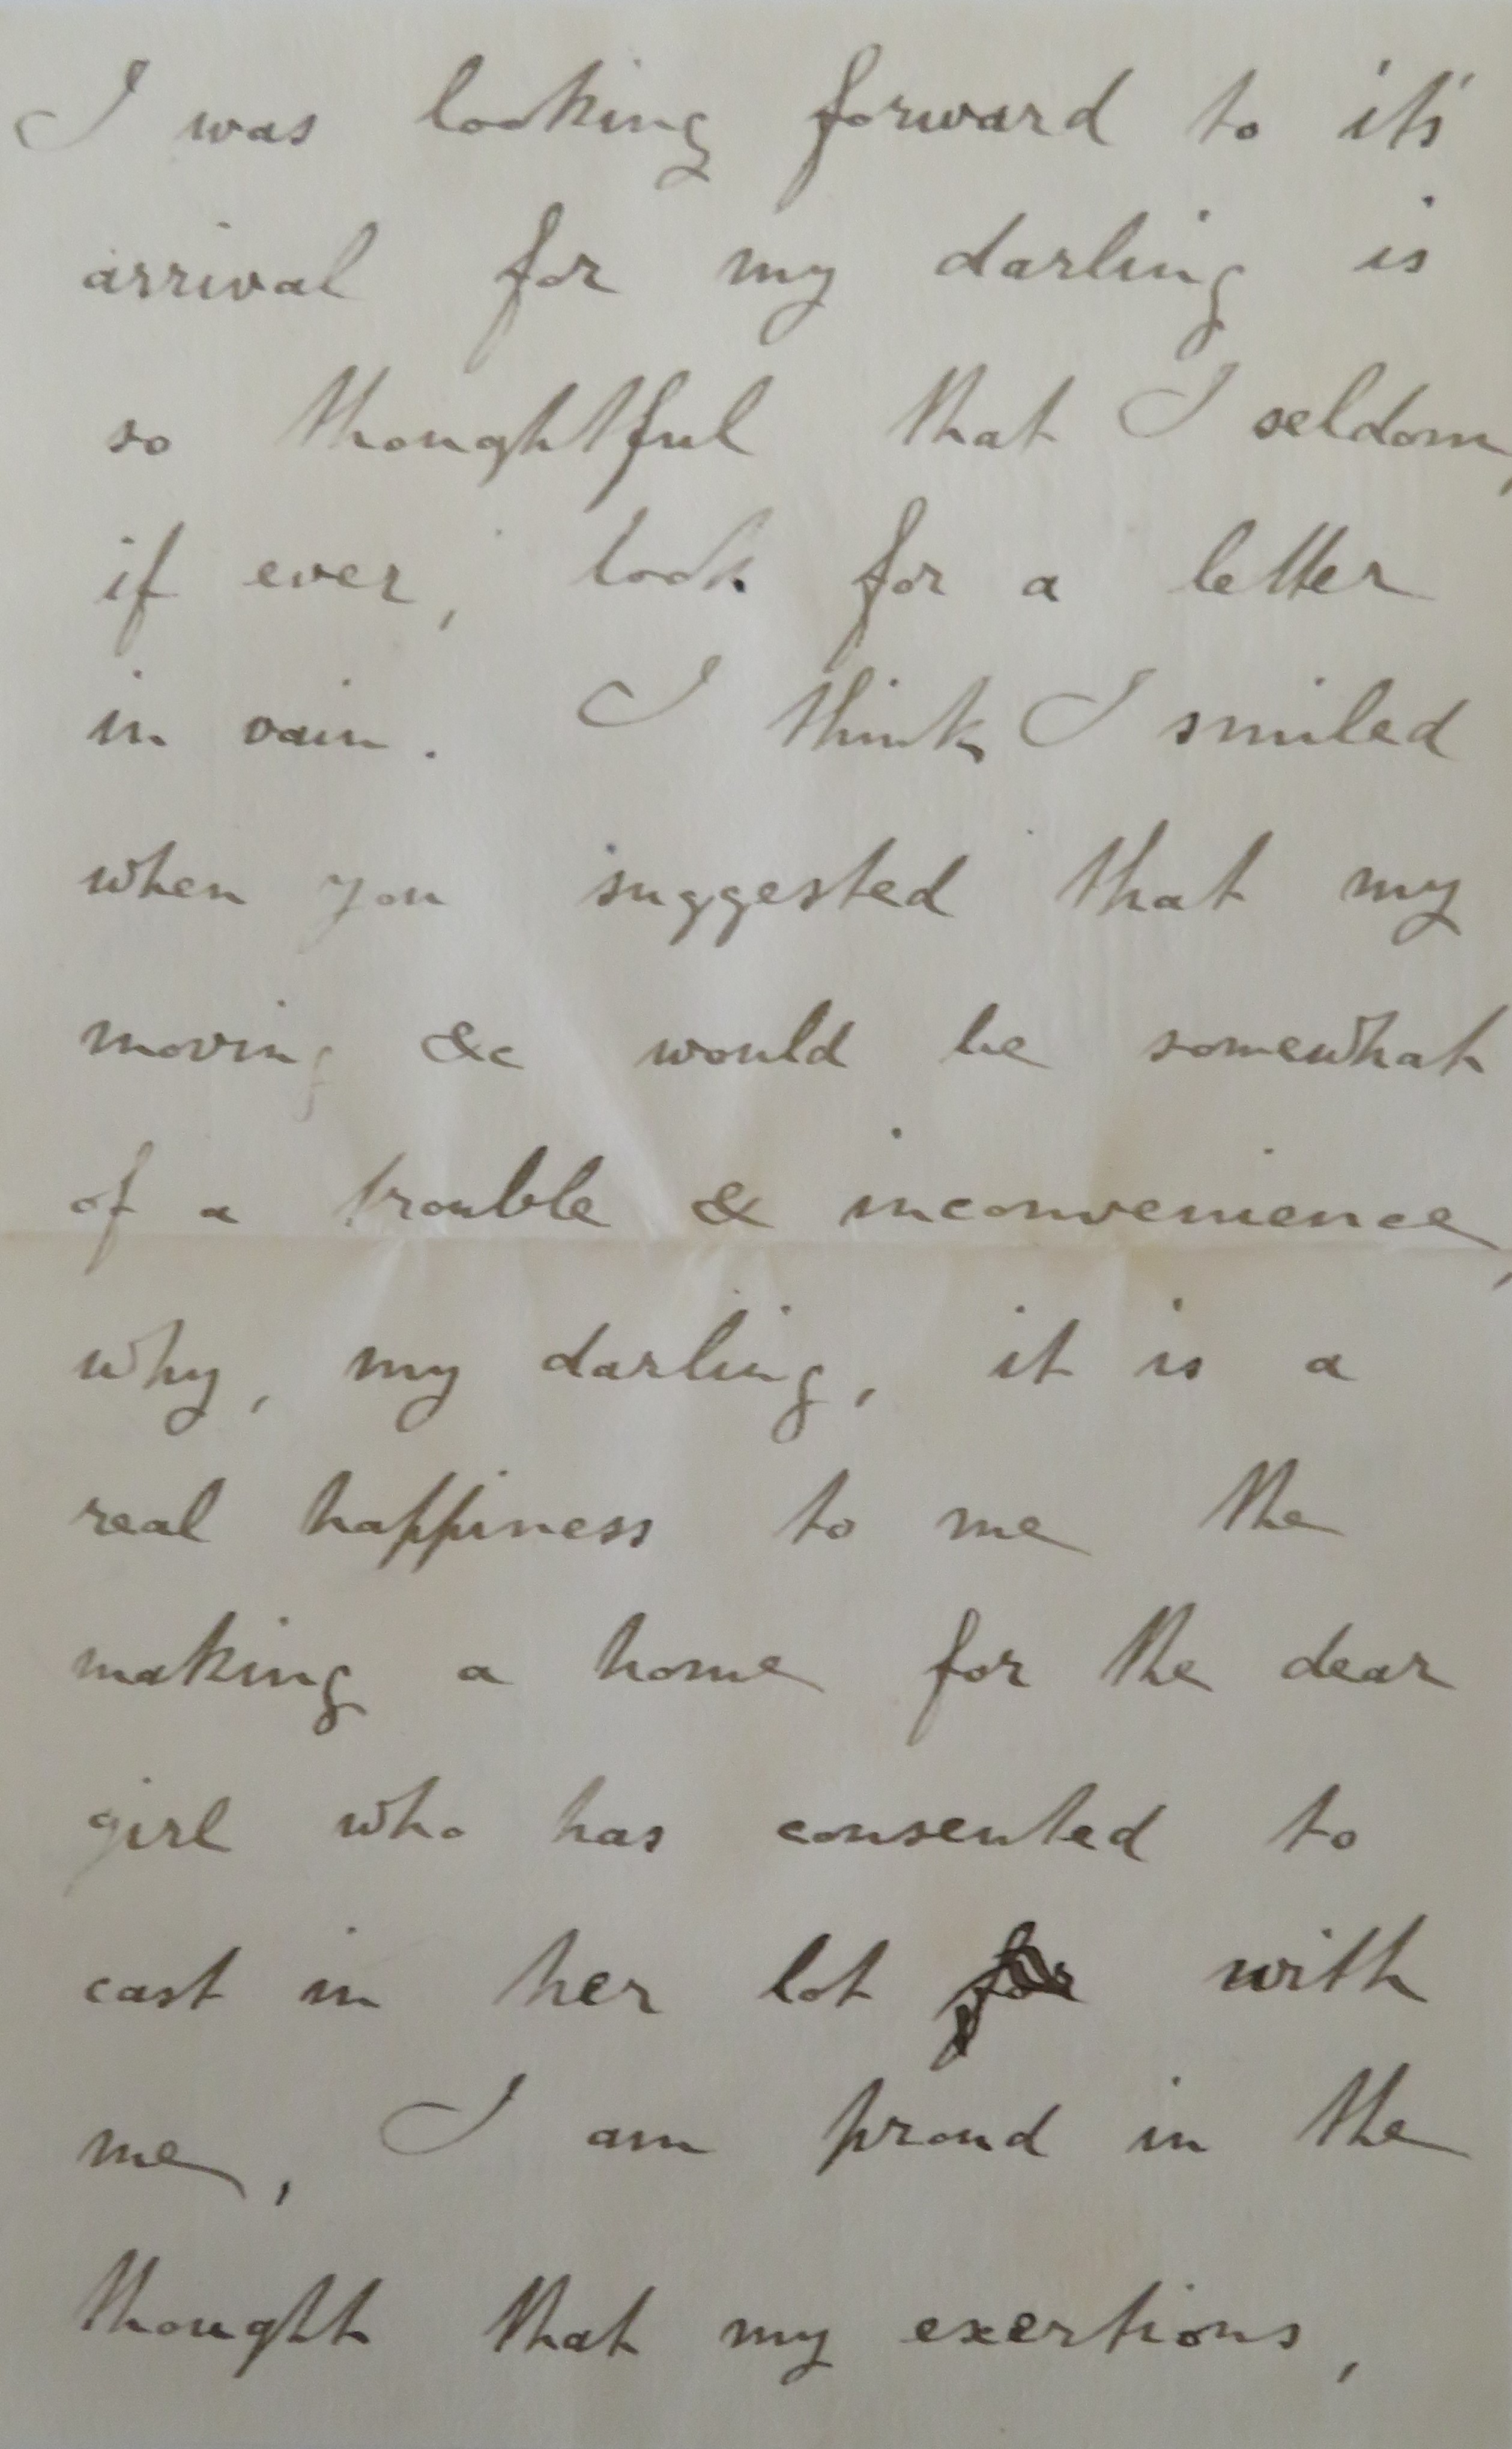 I was looking forward to it's
arrival for my darling is
so thoughtful that I seldom,
if ever, look for a letter
in vain. I think I smiled
when you suggested that my
moving &c would be somewhat
of a trouble & inconvenience,
why, my darling, it is a
real happiness to me the
making a home for the dear
girl who has consented to
cast in her lot for with
me, I am proud in the
thought that my exertions,